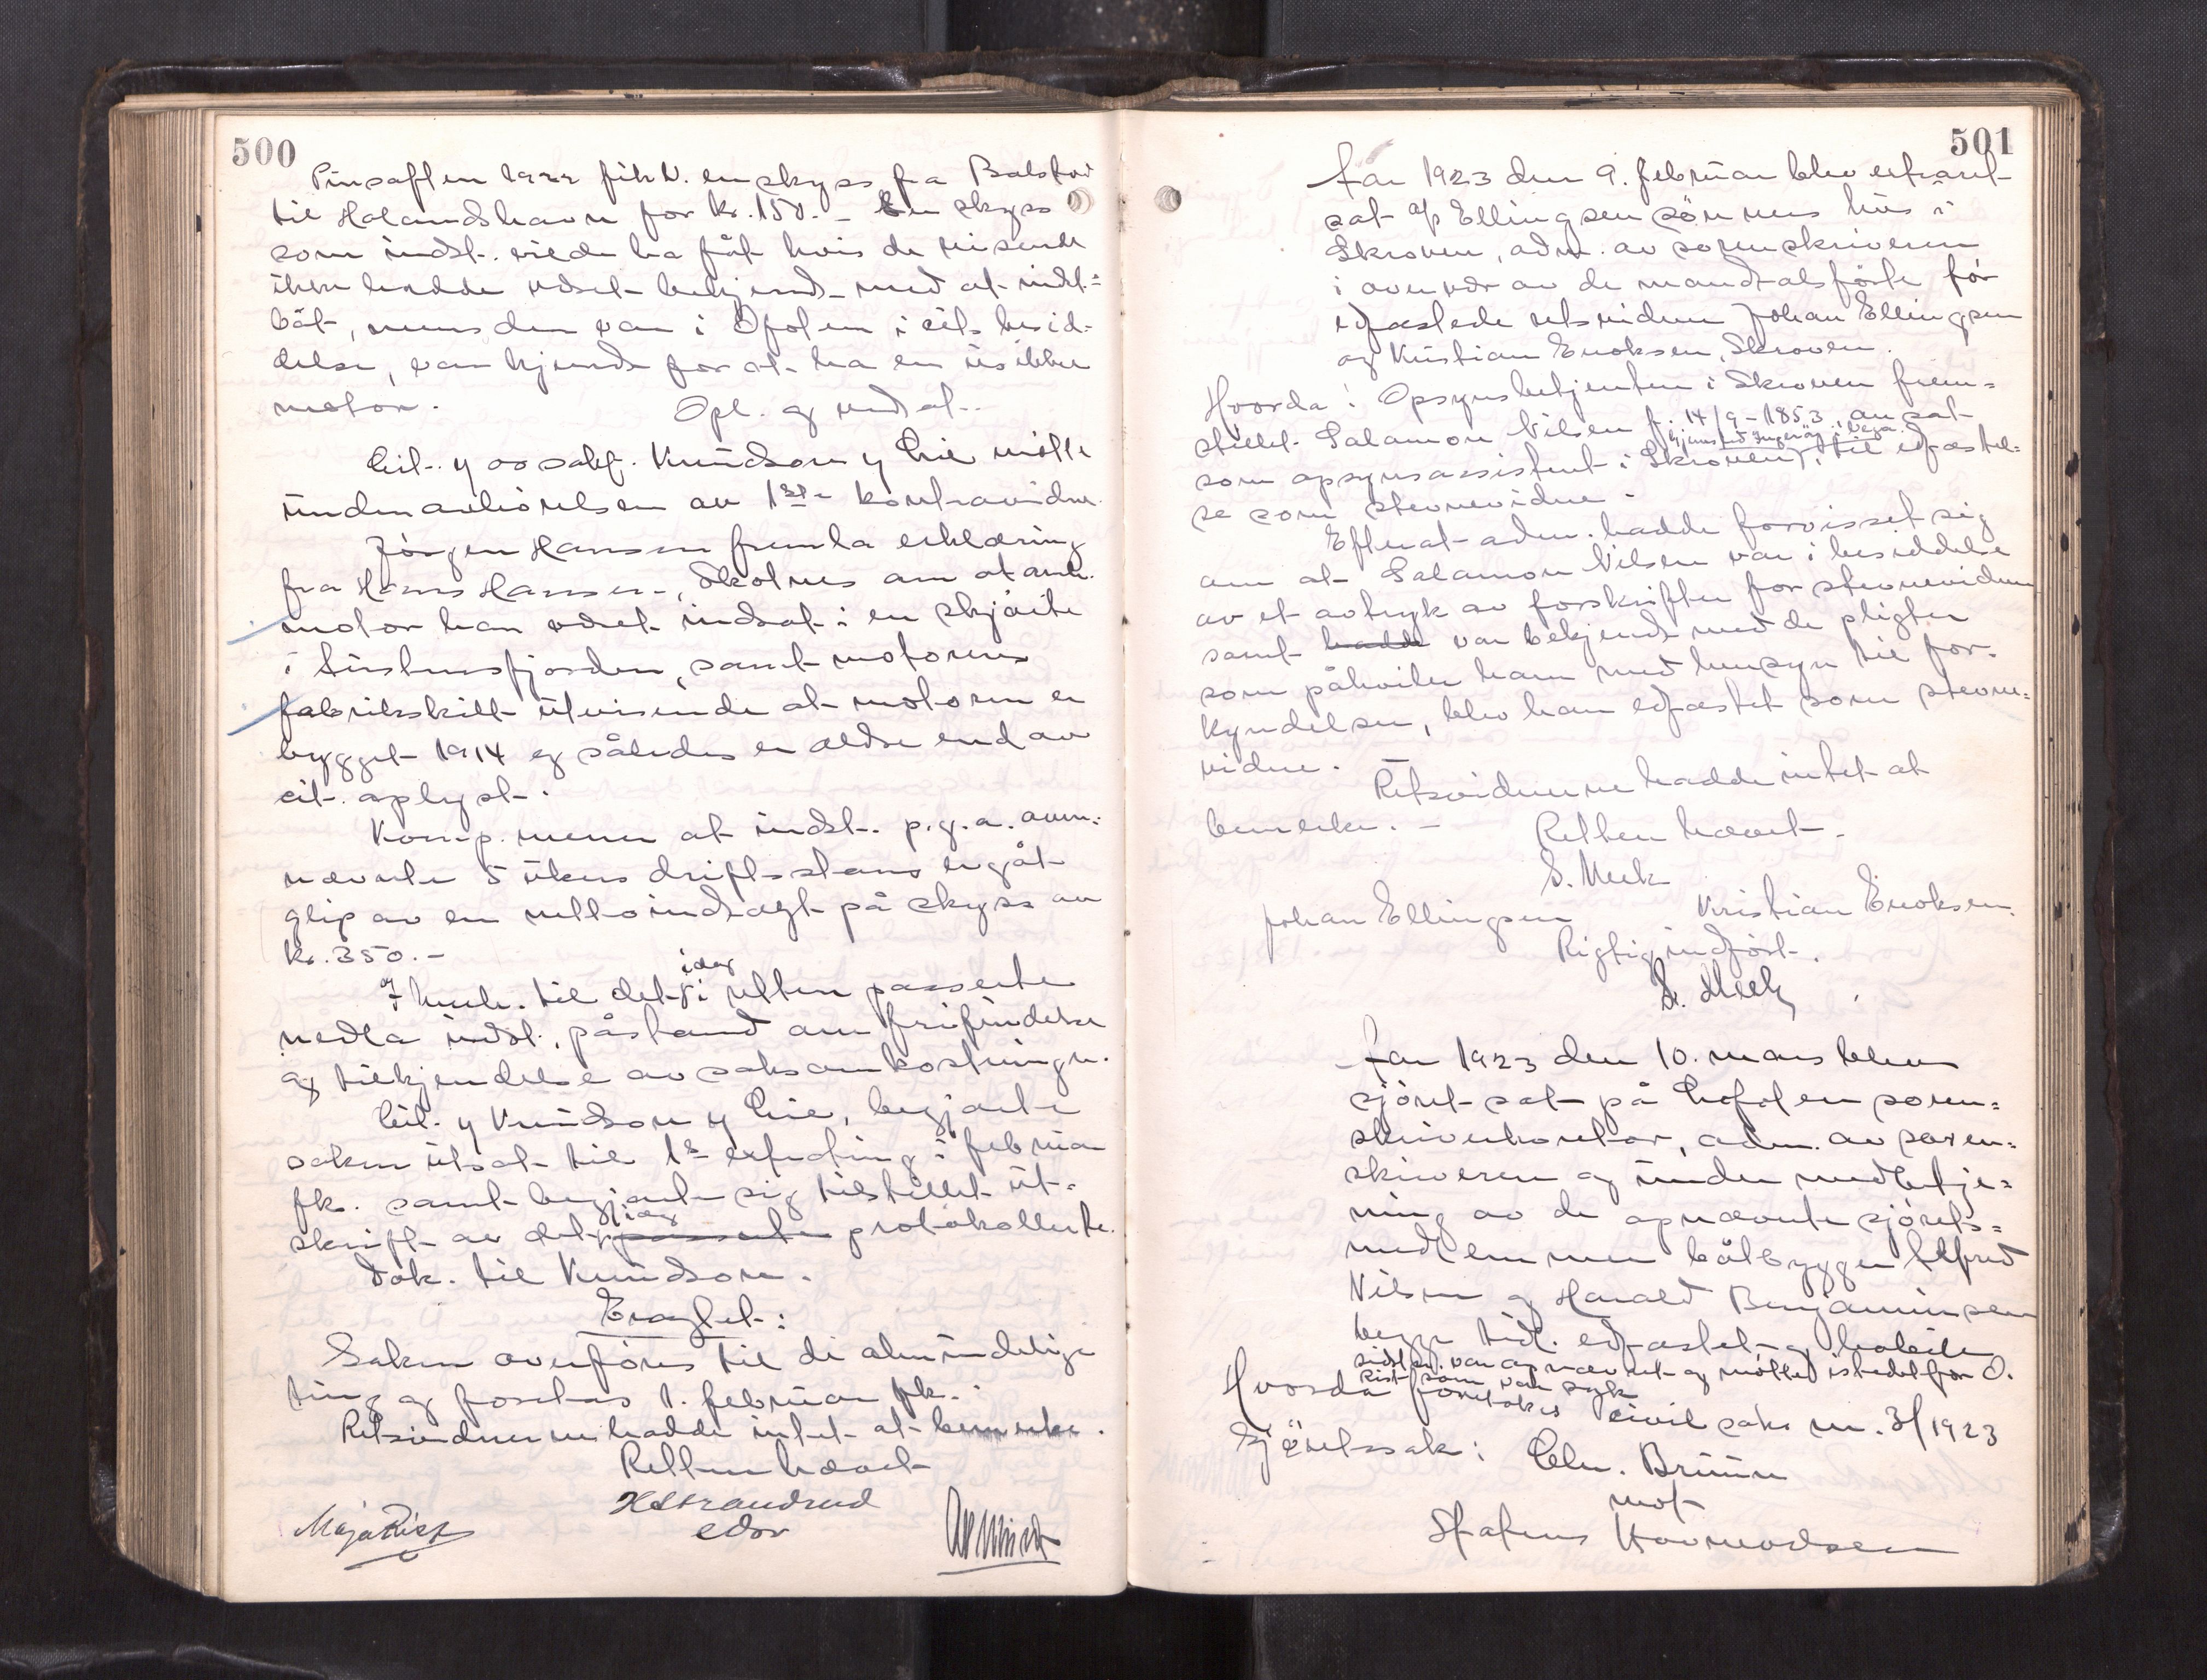 500
Pinsaften 1922 fik N. en skyss fra Balstad
til Holandshavn for kr. 150.- En skyss
som indst. vilde ha fåt hvis de reisende
ikke hadde været bekjendt med at indst.=
båt, mens den var i Ofoten i cits besid-
delse, var kjendt for at ha en usikker
motor. Opl. og vedtat.
Cit. y oo sakf. Knudson y Lie møtte
under avhörelsen av 1ste kontravidne.
Jörgen Hansen fremla erklæring
fra Hans Hansen, Skotnes om at omh.
motor han været indsat i en skjöite
i fjorden, samt motorens
fabrikskilt utvisende at motoren er
bygget 1914 og således er ældre end av
cit. oplyst.
Komp. mener at indst. p.g.a. oven-
nævnte 5 ukers driftsstans er gåt
glip av en nettoindtægt på skyss av
kr. 350.-
I henh. til det idag i retten passerte
nedla indst. påstand om frifindelse
og tilkjendelse av saksomkostninger.
Cit. y Knudson y Lie, begjærte
saken utsat til 1ste extrating i februar
fk. samt begjærte sig tilstillet ut-
skrift av det idag passerte protokollerte.
Dok. til Knudson.
Eragtet:
Saken overføres til de almindelige
ting og foretas 1. februar fk.
Retsvidnerne hadde intet at bemerke.
Retten hævet
H Strandrud
edsv
501
Aar 1923 den 9. februar blev extraret
sat på Ellingsen sönners hus i
Skroven, adm. av sorenskriveren
i overvær av de mandtalsførte för
edfæstede retsvidner Johan Ellingsen
og Kristian Enoksen, Skroven.
Hvorda: Opsynsbetjenten i Skroven frem-
stillet Salamon Nilsen f. 14/9-1853, ansat
hjemsted i Vega
som opsynsassistent i Skroven, til edfæstel-
se som stevnevidne.
Efterat adm. hadde forvisset sig
om at Salamon Nilsen var i besiddelse
av et avtryk av forskrifter for stevnevidner
samt hadde var bekjendt med de pligter
som påhviler ham med hensyn til for-
kyndelser, blev han edfæstet som stevne-
vidne.
Retsvidnerne hadde intet at
bemerke.- Retten hævet.
S. Meek
Johan Ellingsen Kristian Enoksen.
Rigtig indfört.
S. Meek
Aar 1923 den 10. mars blev
sjöret sat på Lofoten soren-
skriverkontor, adm. av soren-
skriveren og under medbetje-
ning av de opnævnte sjörets-
medlemmer båtbygger Alfred
Nilsen og Harald Benjaminsen
begge tidl. edfæstet og
sidstn. var opnævnet og møtte istedetfor O.
Rist som var syk
Hvorda foretokes civil sak nr. 3/1923
Sjöretssak: Chr. Bruun
mot
Hovmodsen